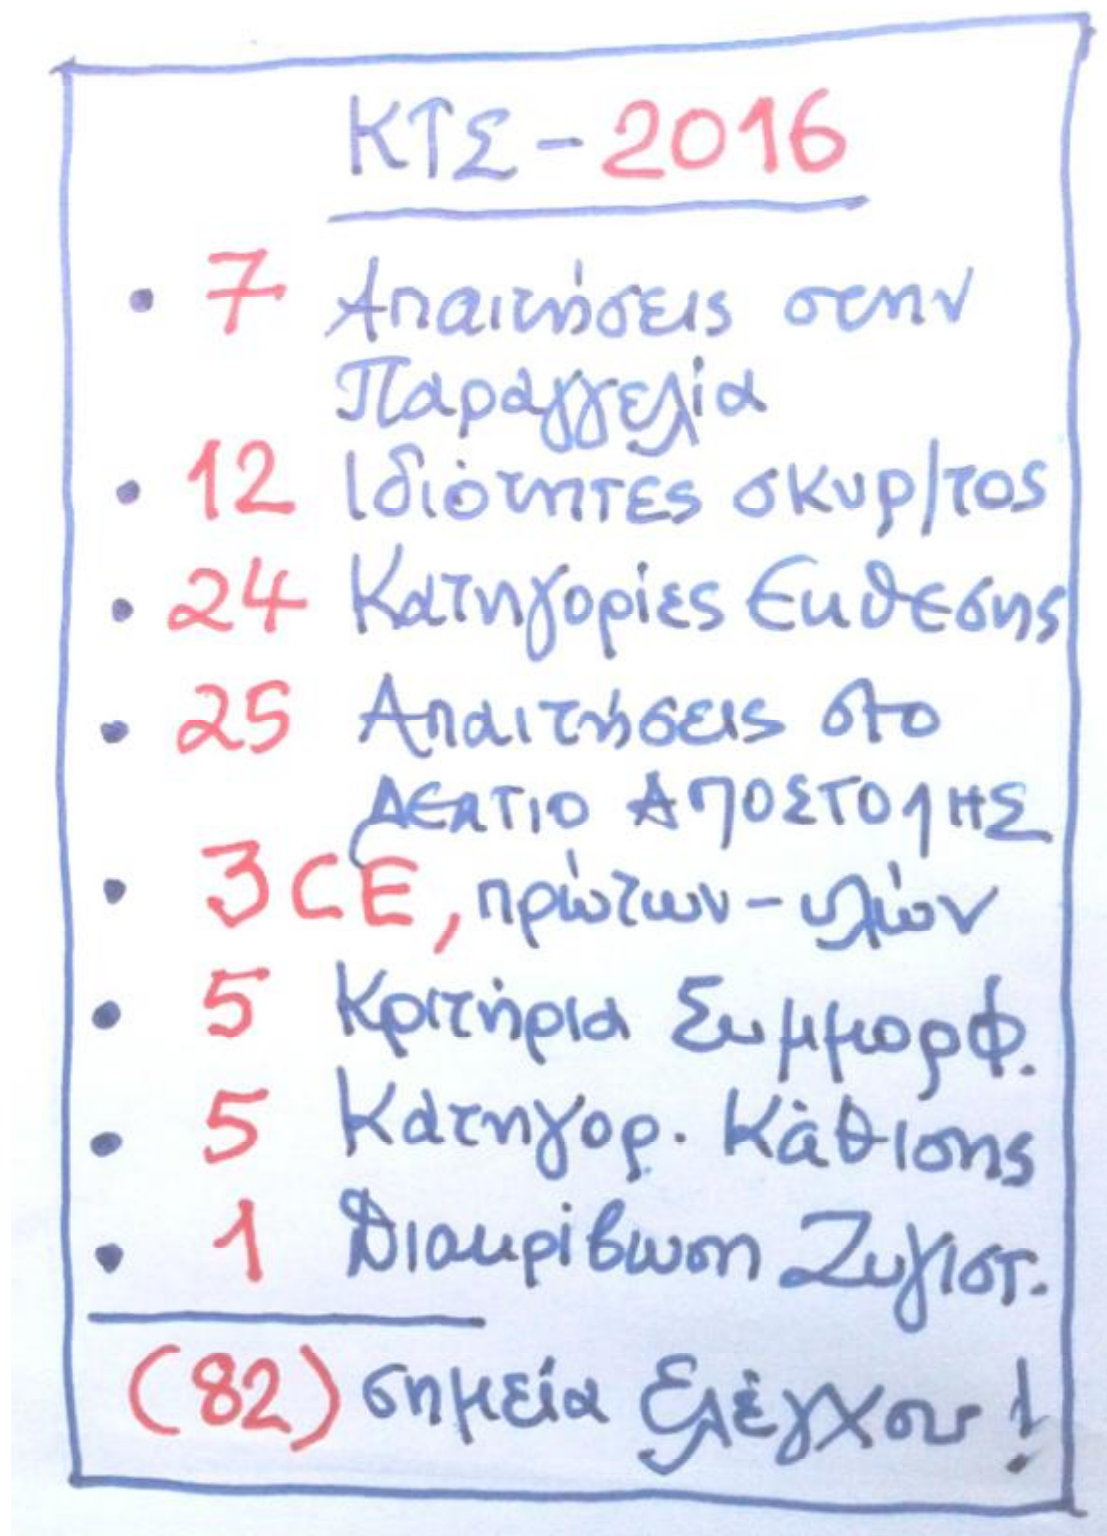 ΚΤΣ - 2016
• 7 Απαιτήσεις στην
Παραγγελία
• 12 Ιδιότητες σκυρ/τος
• 24 Κατηγορίες Εκθεσης
• 25 Απαιτήσεις στο
ΔΕΛΤΙΟ ΑΠΟΣΤΟΛΗΣ
• 3 CE, πρώτων-υλών
• 5 Κριτήρια Συμμορφ.
• 5 Κατηγορ. Κάθισης
• 1 Διακρίβωση Ζυγιστ.
(82) σημεία Ελέγχου!